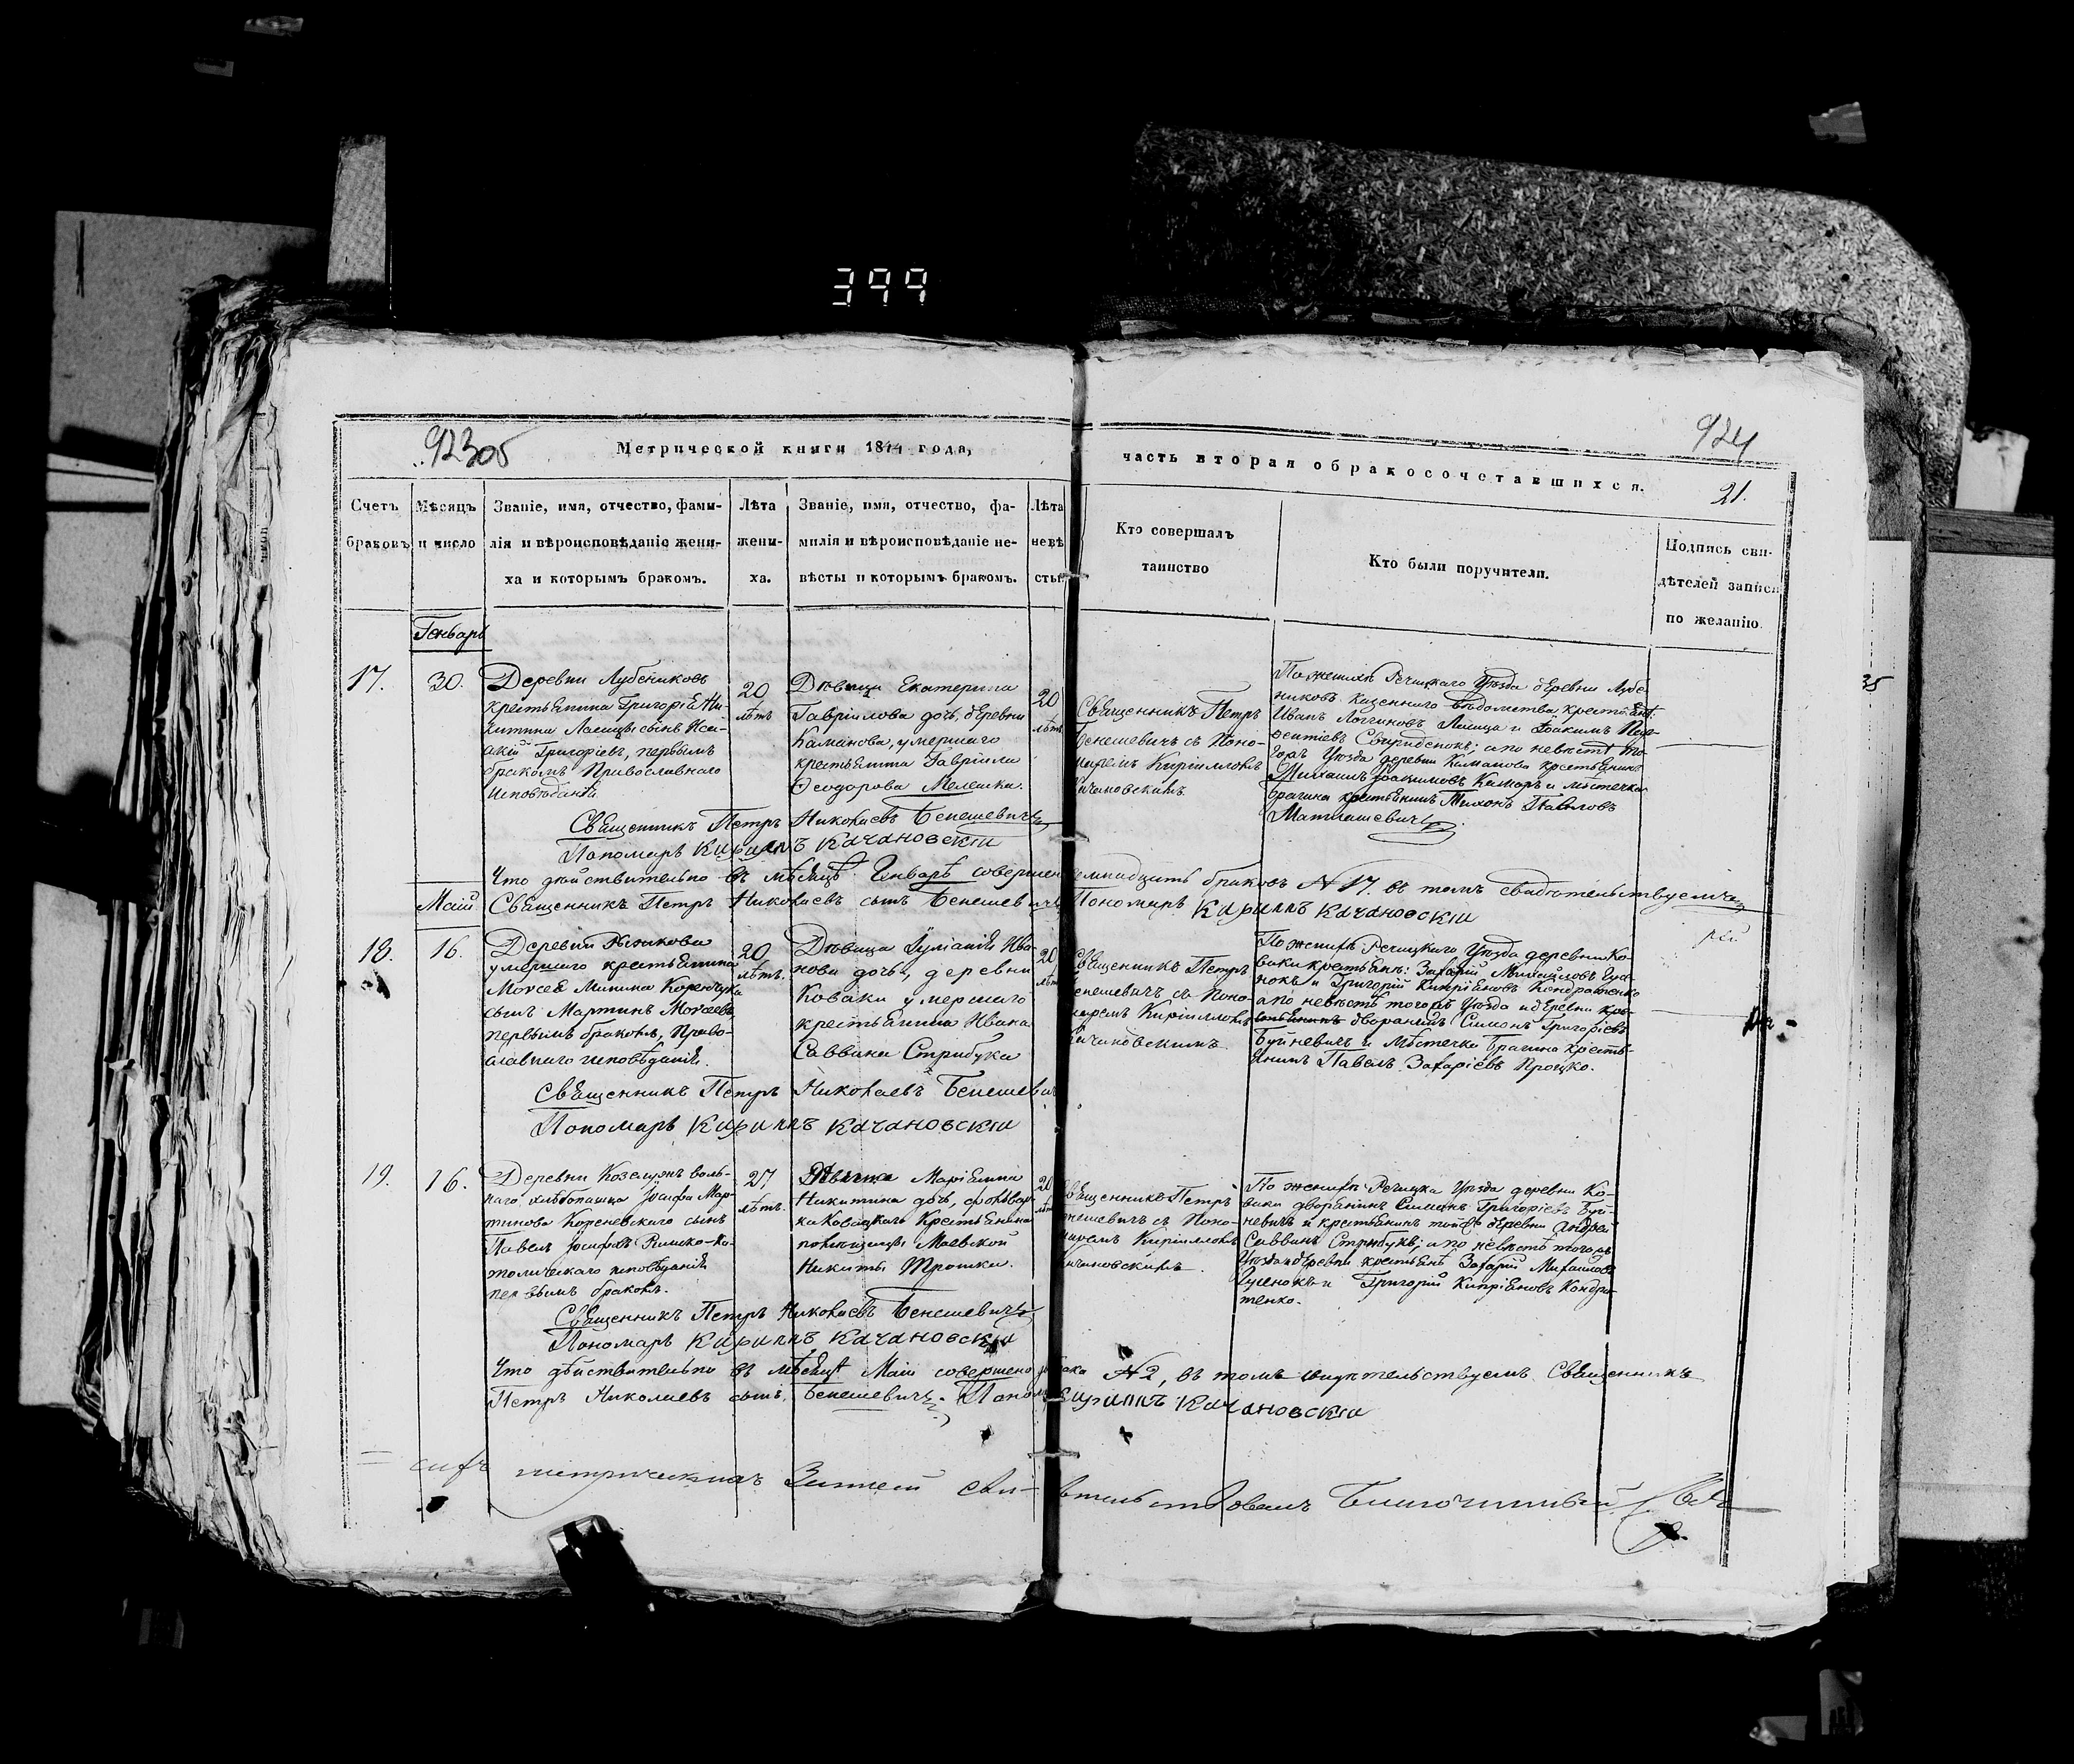 399
92305
Метрической книги 1844 года,
924
часть вторая о бракосочетавшихся.
21.
Счетъ браковъ
Мѣсяцъ и число
Званіе, имя, отчество, фами-
лія и вѣроисповѣданіе жени-
ха и которымъ бракомъ.
Лѣта
жени-
ха.
Званіе, имя, отчество, фа-
милія и вѣроисповѣданіе не-
вѣсты и которымъ бракомъ.
Лѣта
невѣ
сты
Кто совершалъ
таинство
Кто были поручители.
Подпись сви-
дѣтелей записи
по желанію.
Генварь
17.
30.
Деревни Лубениковъ
крестьянина Григорія Ни-
китина Лисицы сынъ Иса-
акій Григоріевъ, первымъ
бракомъ Православнаго
исповѣданія.
20
лѣтъ
Дѣвица Екатерина
Гавріилова дочь, деревни
Каманова, умершаго
крестьянина Гавріила
Ѳеодорова Мелешки.
20
лѣтъ
Священникъ Петръ
Бенешевичъ съ Поно-
маремъ Кирилломъ
Качановскимъ.
По женихѣ Речицкаго Уѣзда деревни Лубе-
никовъ казеннаго вѣдомства крестьяне:
Иванъ Логгиновъ Лисица и Іоакимъ
Свириденокъ; а по невѣстѣ то-
гожъ Уѣзда деревни Каманова крестьянинъ
Михаилъ Іоакимовъ и мѣстечка
Брагина крестьянинъ Тихонъ Павловъ
Матиашевичъ.
Священникъ Петръ Николаевъ Бенешевичъ
Пономарь Кириллъ Качановскій
Что дѣйствительно въ мѣсяцѣ Генварѣ совершено семнадцать браковъ N 17. въ томъ свидѣтельствуемъ
Священникъ Петръ Николаевъ сынъ Бенешевичъ Пономарь Кириллъ Качановскій
Маій
18.
16.
Деревни
умершаго крестьянина
Моисея Минина Коренчука
сынъ Мартинъ Моисеевъ
первымъ бракомъ, Право-
славнаго исповѣданія.
20
лѣтъ.
Дѣвица Іуліанія Ива-
нова дочь, деревни
Коваки умершаго
крестьянина Ивана
Саввина Стрибука
20
лѣтъ
Священникъ Петръ
Бенешевичъ съ Поно-
маремъ Кирилломъ
Качановскимъ.
По женихѣ Речицкаго Уѣзда деревни Ко-
ваки крестьяне: Захарій Михайловъ Гуле-
нокъ и Григорій Кипріяновъ Кондратенко
а по невѣстѣ тогожъ Уѣзда и деревни кре-
стьянинъ дворанинъ Симонъ Григоріевъ
Буйневичъ и Мѣстечка Брагина кресть-
янинъ Павелъ Захаріевъ Процко.
Священникъ Петръ Николаевъ Бенешевичъ
Пономарь Кириллъ Качановскій
19.
16.
Деревни Козелужъ воль-
наго хлѣбопашца Іосифа Мар-
тинова Кореневскаго сынъ
Павелъ Іосифовъ Римско-Ка-
толическаго исповѣданія
первымъ бракомъ.
27
лѣтъ.
Дѣвица Маріянна
Никитина дочь, фольвар-
ка Ковацкаго Крестьянина
помѣщицы Маевской
Никиты Трошки.
20
лѣтъ
Священникъ Петръ
Бенешевичъ съ Поно-
маремъ Кирилломъ
Качановскимъ.
По женихѣ Речицка Уѣзда деревни Ко-
ваки дворанинъ Симонъ Григоріевъ Буй-
невичъ и крестьянинъ тойжъ деревни Андрей
Саввинъ Стрибукъ; а по невѣстѣ тогожъ
Уѣзда и деревни крестьяне Захарій Михайловъ
Гуленокъ и Григорій Кипріяновъ Кондра-
тенко.
Священникъ Петръ Николаевъ Бенешевичъ
Пономарь Кириллъ Качановскій
Что дѣйствительно въ мѣсяцѣ Маіи совершено два брака N 2, въ томъ свидѣтельствуемъ Священникъ
Петръ Николаевъ сынъ Бенешевичъ. Пономарь Кириллъ Качановскій
сихъ метрическихъ свидѣтельствовалъ Благочинный